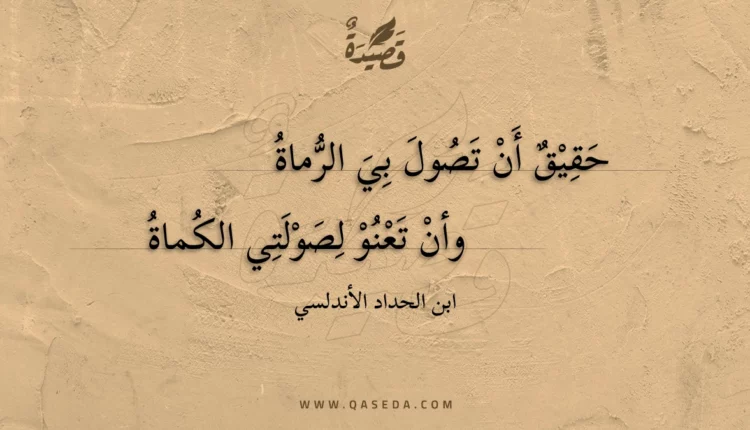 قَصِيْدَةٌ
حَقِيْقٌ أَنْ تَصُولَ بِيَ الرُّماةُ
وأنْ تَعْنُوْ لِصَوْلَتِي الكُماةُ
ابن الحداد الأندلسي
WWW.QASEDA.COM